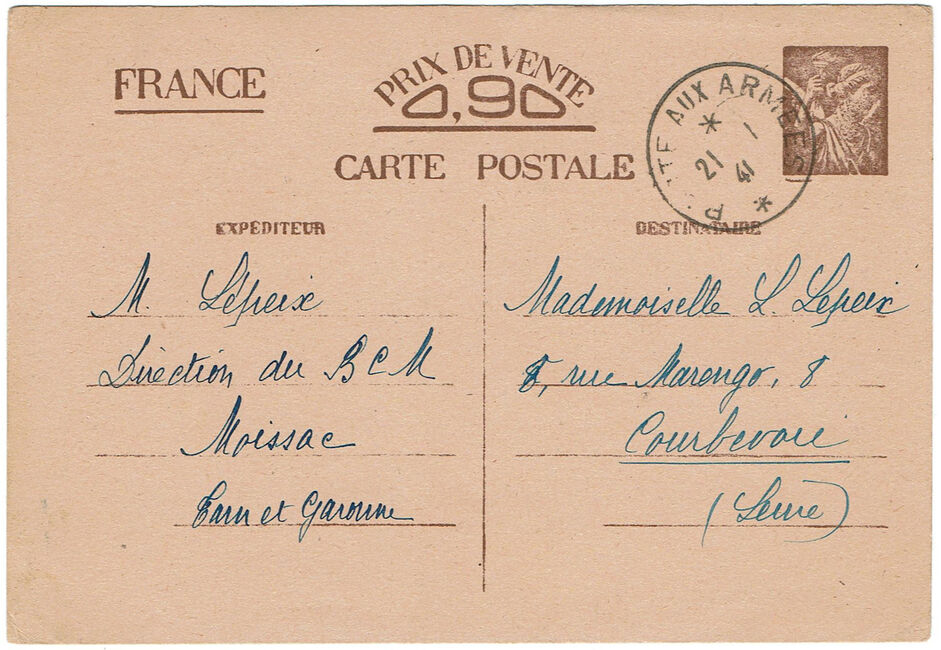 FRANCE
PRIX DE VENTE
0,90
CARTE POSTALE
POSTE AUX ARMÉES
21 - 1
41
EXPÉDITEUR
M. Lépeix
Direction du B C M
Moissac
Tarn et Garonne
DESTINATAIRE
Mademoiselle L. Lepeix
8, rue Marengo, 8
Courbevoie
(Seine)